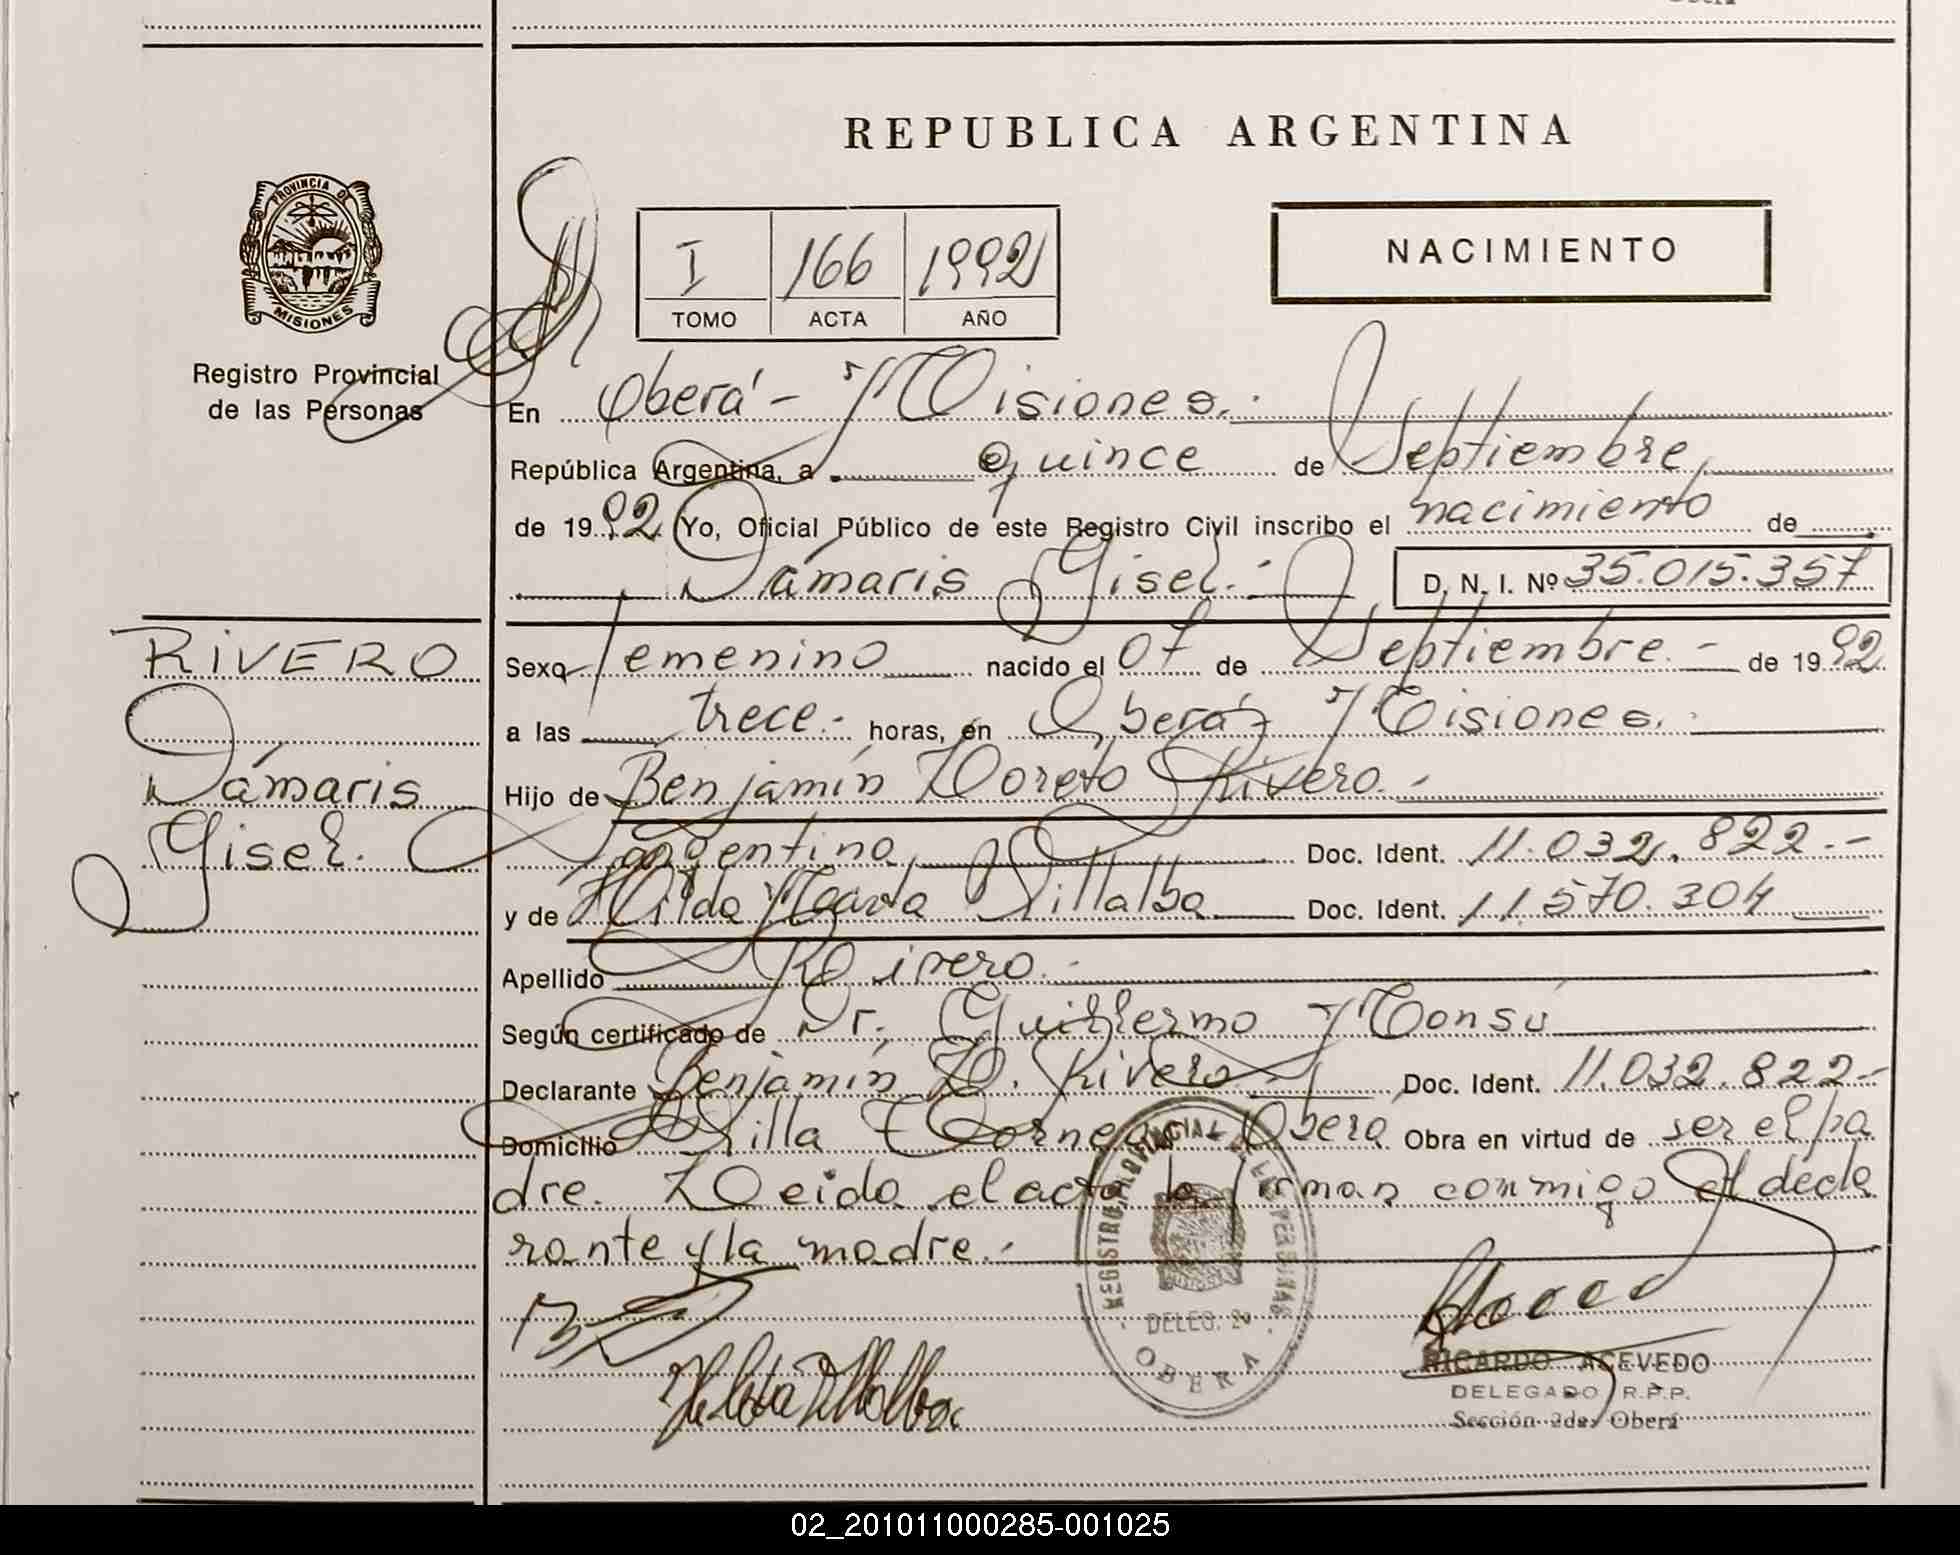 REPUBLICA ARGENTINA
PROVINCIA DE
MISIONES
Registro Provincial
de las Personas
I 166 1992
TOMO ACTA AÑO
NACIMIENTO
En Oberá - Misiones.
República Argentina, a quince de Septiembre
de 1992 Yo, Oficial Público de este Registro Civil inscribo el nacimiento de
Dámaris Gisel.- D. N. I. Nº 35.015.357
RIVERO
Dámaris
Gisel.
Sexo femenino nacido el 07 de Septiembre.- de 1992
a las trece.- horas, en Oberá, Misiones.
Hijo de Benjamín Loreto Rivero.-
argentino Doc. Ident. 11.032.822.-
y de Hilda Marta Villalba Doc. Ident. 11.570.304
Apellido Rivero.-
Según certificado de Dr. Guillermo Monsú
Declarante Benjamín L. Rivero Doc. Ident. 11.032.822-
Domicilio Villa Oberá Obra en virtud de ser el pa
dre. Leida el acta la firman conmigo el decla
rante y la madre.-
REGISTRO PROVINCIAL DE LAS PERSONAS
DELEG. 2ª
OBERA
Hilda Villalba
RICARDO ACEVEDO
DELEGADO R.P.P.
Sección 2da. Oberá
02_201011000285-001025